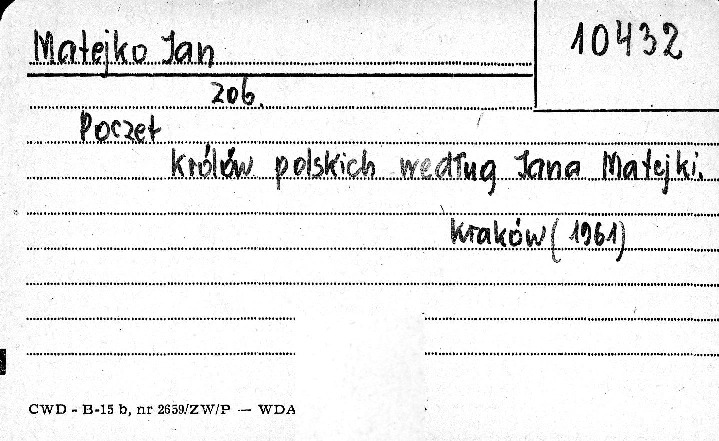 Matejko Jan
10432
zob.
Poczet
królów polskich według Jana Matejki.
Kraków (1961)
CWD - B-15 b, nr 2659/ZW/P — WDA